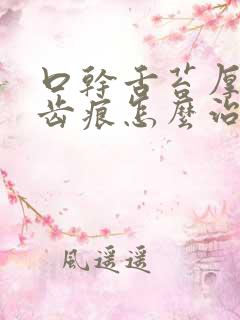 口幹舌苔厚
齿痕怎麼治
風遥遥